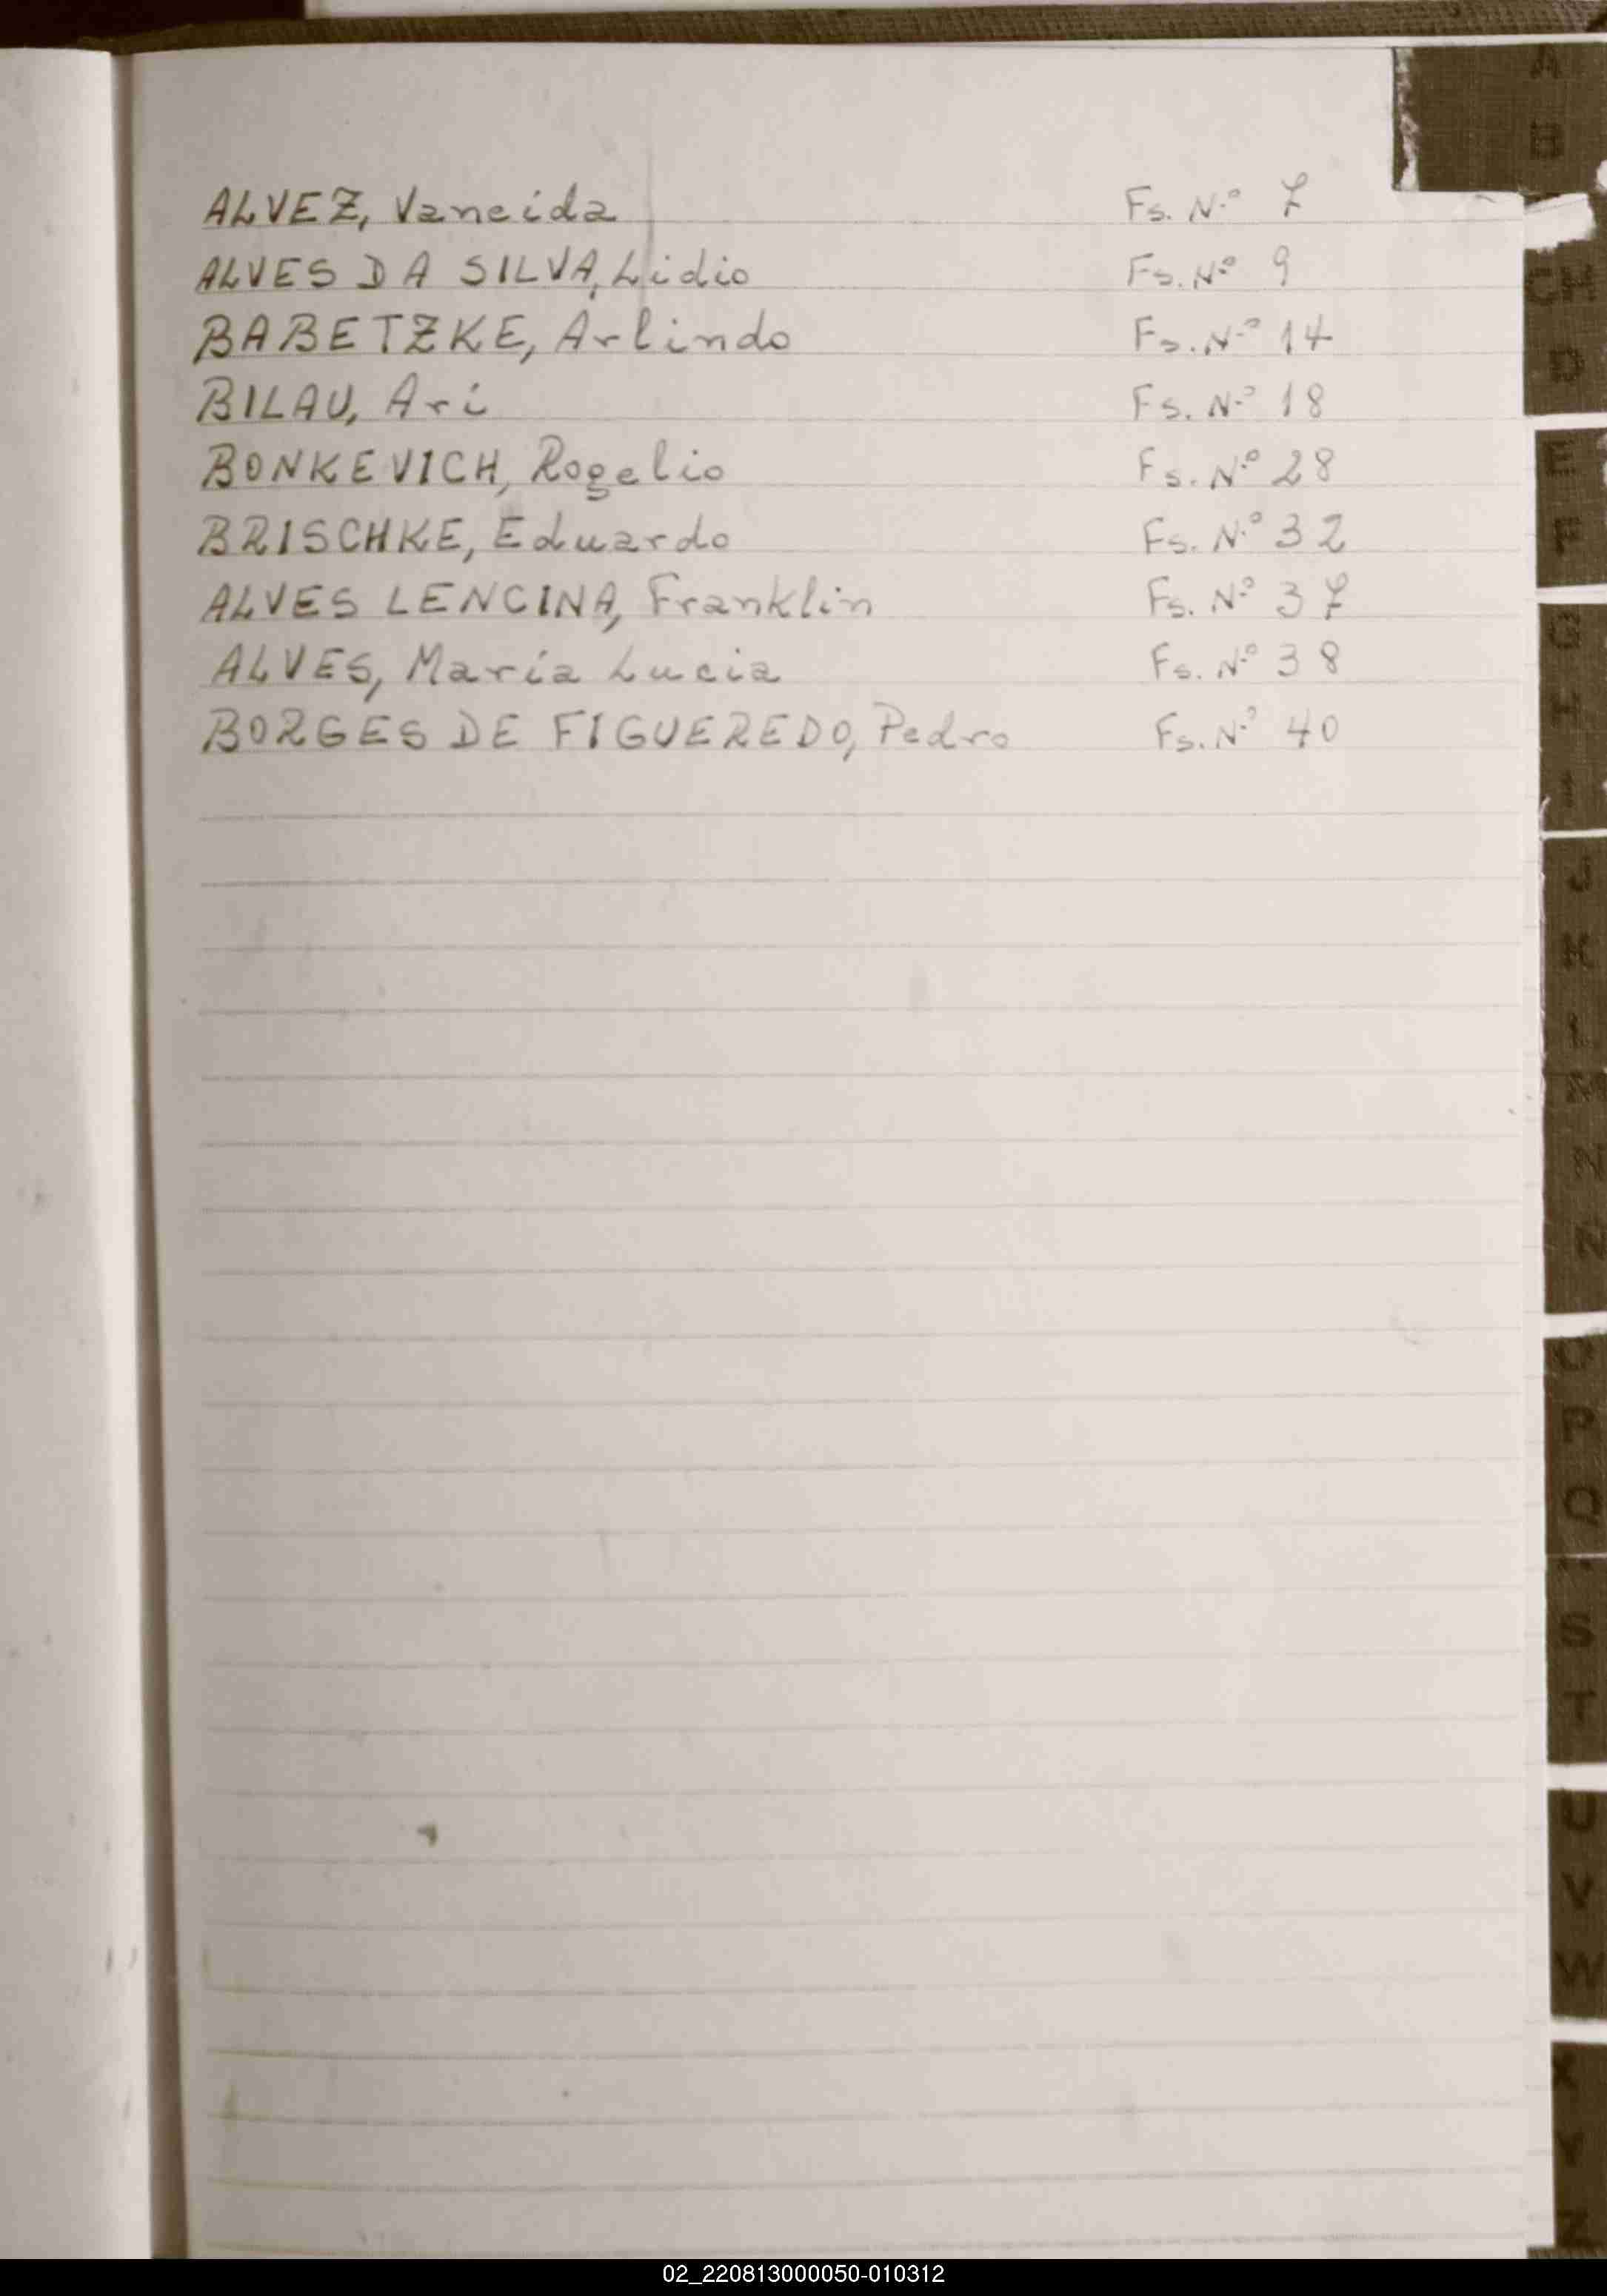 ALVEZ, Vaneida Fs. N.º 7
ALVES DA SILVA, Lidio Fs. N.º 9
BABETZKE, Arlindo Fs. N.º 14
BILAU, Ari Fs. N.º 18
BONKEVICH, Rogelio Fs. N.º 28
BRISCHKE, Eduardo Fs. N.º 32
ALVES LENCINA, Franklin Fs. N.º 37
ALVES, María Lucia Fs. N.º 38
BORGES DE FIGUEREDO, Pedro Fs. N.º 40
A
B
CH
D
E
F
G
H
I
J
K
L
M
N
O
P
Q
S
T
U
V
W
X
Y
Z
02_220813000050-010312